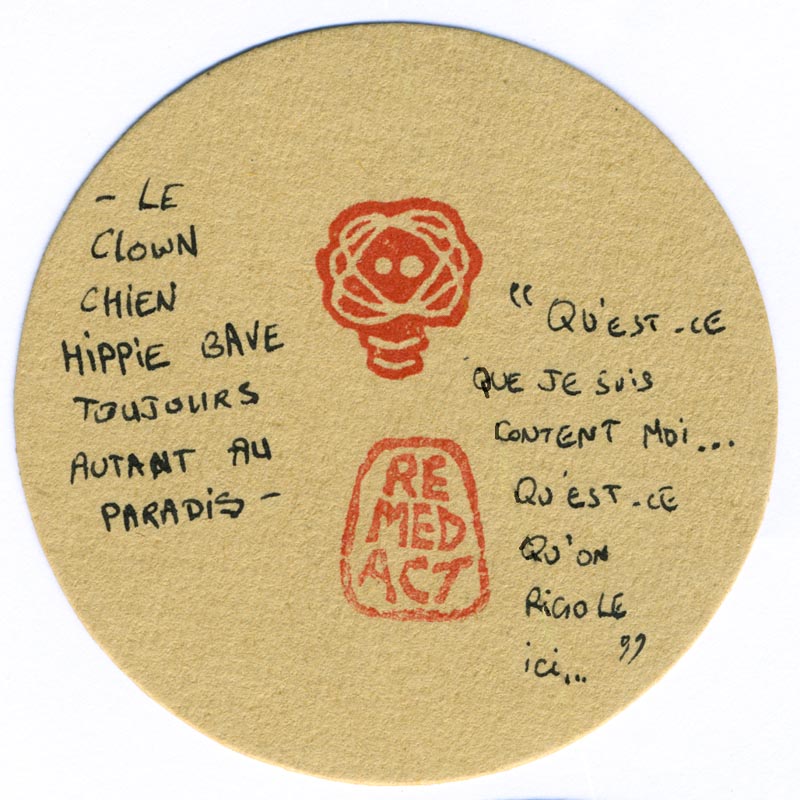 - LE
CLOWN
CHIEN
HIPPIE BAVE
TOUJOURS
AUTANT AU
PARADIS -
RE
MED
ACT
“ QU'EST-CE
QUE JE SUIS
CONTENT MOI...
QU'EST-CE
QU'ON
RIGOLE
ici... ”